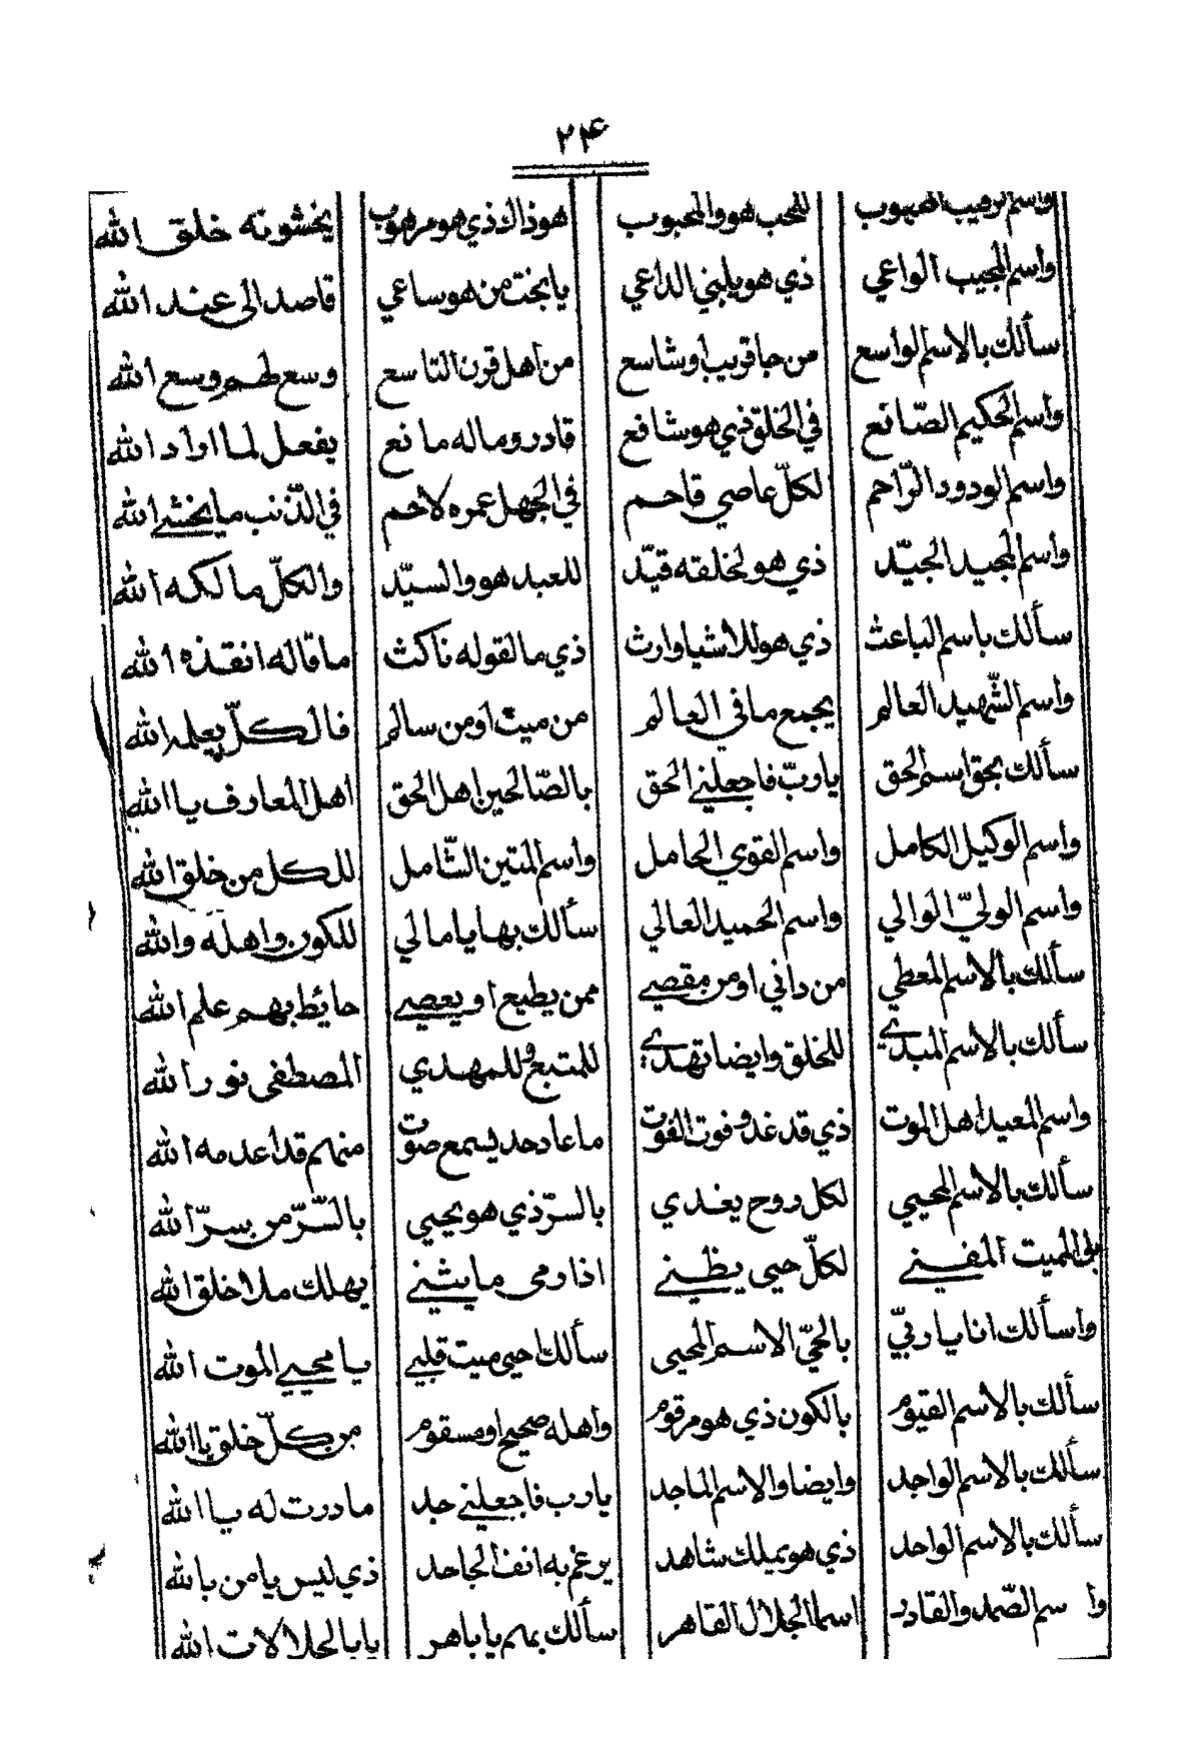 ۲۴
واسم الرقيب المهيوب للمحب هو والمحبوب هوذاك ذي هو مرهوب يخشونه خلق الله
واسم المجيب الواعي ذي هو يلبني الداعي يابخت من هو ساعي قاصد الى عند الله
سألك بالاسم الواسع من جا قريب أو شاسع من اهل قرن التاسع وسع لهم وسع الله
واسم الحكيم الصّانع في الخلق ذي هو شافع قادر وماله مانع يفعل لما اراد الله
واسم الودود الرّاحم لكلّ عاصي قاحم في الجهل عمره لاحم في الذّنب ما يخشى الله
واسم المجيد الجيّد ذي هو لخلقه قيّد للعبد هو والسيّد والكلّ مالكه الله
سألك باسم الباعث ذي هو للاشيا وارث ذي ما لقوله ناكث ما قاله انقذه الله
واسم الشّهيد العالم يجمع ما في العالم من ميت او من سالم فالكلّ يعلمه الله
سألك بحق اسم الحق يا ربّ فاجعلني الحق بالصّالحين اهل الحق اهل المعارف يا الله
واسم الوكيل الكامل واسم القوي الحامل واسم المتين الشّامل للكل من خلق الله
واسم الوليّ الوالي واسم الحميد العالي سألك بها يا مالي للكون واهله والله
سألك بالاسم المعطي من داني او من مقصي ممن يطيع او يعصي حايط بهم علم الله
سألك بالاسم المبدي للخلق وايضا تهدي للمتبع وللمهدي المصطفى نور الله
واسم المعيد اهل الموت ذي قد غدو فوت الفوت ما عاد حد يسمع صوت منهم قد اعدمه الله
سألك بالاسم المحيي لكل روح يغدي بالسرّ ذي هو يحيي بالسّرّ من سرّ الله
بلى المميت المفني لكلّ حيى يظني اذا رمى ما يثني يهلك ملا خلق الله
واسألك انا يا ربيّ بالحيّ الاسم المحيى سألك احيى ميت قلبي يا محيي الموت الله
سألك بالاسم القيّوم بالكون ذي هو مرقوم واهله صحيح او مسقوم من كلّ خلق يا الله
سألك بالاسم الواجد وايضا والاسم الماجد يا رب فاجعلني جد ما درت له يا الله
سألك بالاسم الواحد ذي هو بملك شاهد يرغم به انف الجاحد ذي ليس يامن بالله
واسم الصّمد والقادر اسما الجلال القاهر سألك بهم يا باهر يا با الجلالات الله